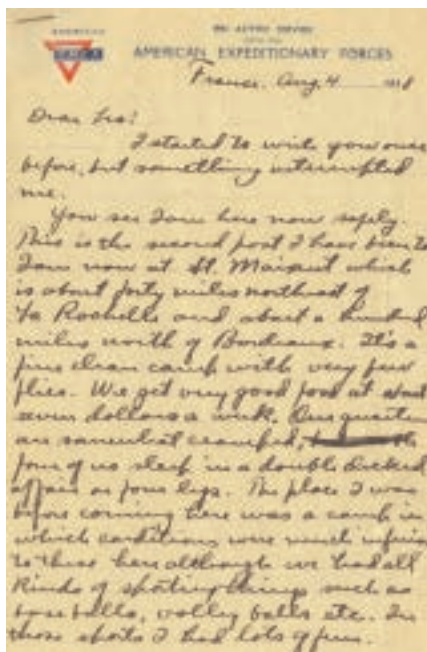 ON ACTIVE SERVICE
WITH THE
AMERICAN EXPEDITIONARY FORCES
France, Aug. 4 1918
Dear
I started to write you once
before, but something interrupted
me.
You see I am here now safely.
This is the second post I have been to
I am now at St. Maixent which
is about forty miles northeast of
La Rochelle and about a hundred
miles north of Bordeaux. It's a
fine clean camp with very few
flies. We get very good food at about
seven dollars a week. Our quarters
are somewhat cramped,
four of us sleep in a double decked
affair on four legs. The place I was
before coming here was a camp in
which conditions were much inferior
to these here although we had all
kinds of sporting things such as
base balls, volley balls etc. In
those sports I had lots of fun.